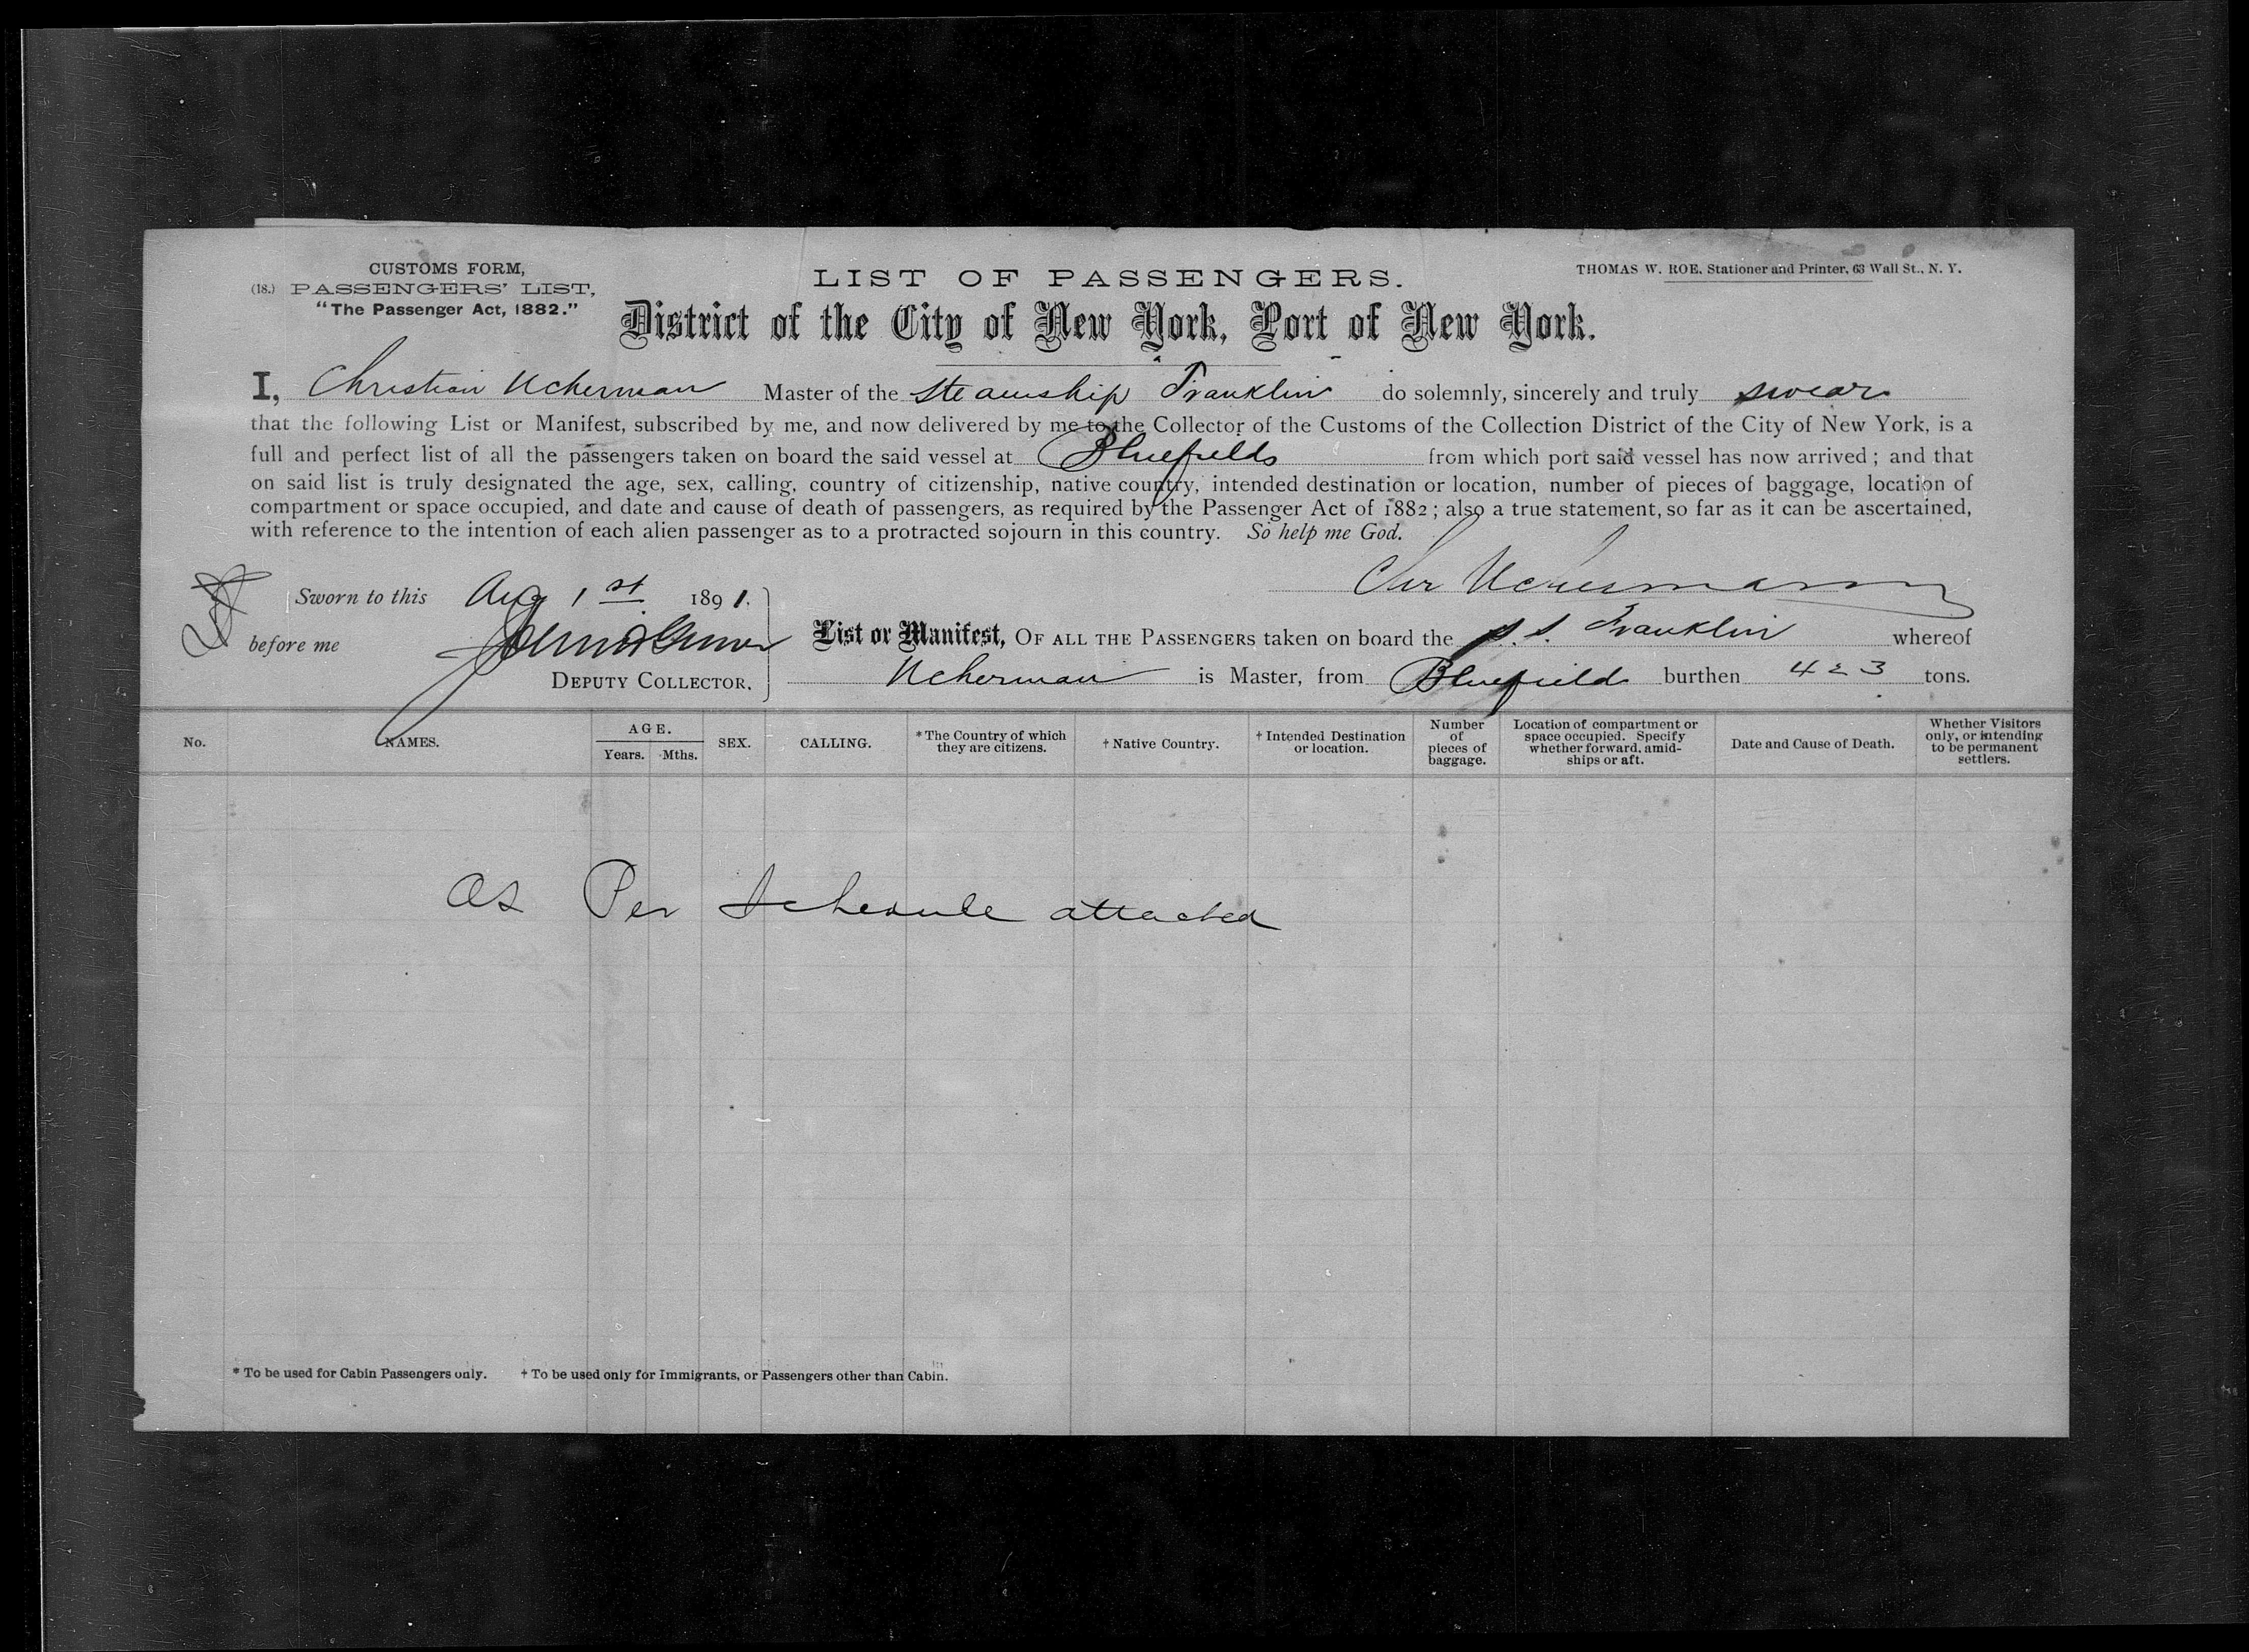 CUSTOMS FORM,
(18.) PASSENGERS' LIST,
"The Passenger Act, 1882."
LIST OF PASSENGERS.
THOMAS W. ROE, Stationer and Printer, 63 Wall St., N. Y.
District of the City of New York, Port of New York.
I, Christian Uckerman Master of the Steamship Franklin do solemnly, sincerely and truly swear
that the following List or Manifest, subscribed by me, and now delivered by me to the Collector of the Customs of the Collection District of the City of New York, is a
full and perfect list of all the passengers taken on board the said vessel at Bluefields from which port said vessel has now arrived; and that
on said list is truly designated the age, sex, calling, country of citizenship, native country, intended destination or location, number of pieces of baggage, location of
compartment or space occupied, and date and cause of death of passengers, as required by the Passenger Act of 1882; also a true statement, so far as it can be ascertained,
with reference to the intention of each alien passenger as to a protracted sojourn in this country. So help me God.
Chr Uckermann
Sworn to this Aug 1st 1891.
before me
DEPUTY COLLECTOR.
List or Manifest, OF ALL THE PASSENGERS taken on board the S. S. Franklin whereof
Uckerman is Master, from Bluefield burthen 423 tons.
No.
NAMES.
AGE.
Years. Mths.
SEX.
CALLING.
* The Country of which
they are citizens.
† Native Country.
† Intended Destination
or location.
Number
of
pieces of
baggage.
Location of compartment or
space occupied. Specify
whether forward, amid-
ships or aft.
Date and Cause of Death.
Whether Visitors
only, or intending
to be permanent
settlers.
As Per Schedule attached
* To be used for Cabin Passengers only. † To be used only for Immigrants, or Passengers other than Cabin.